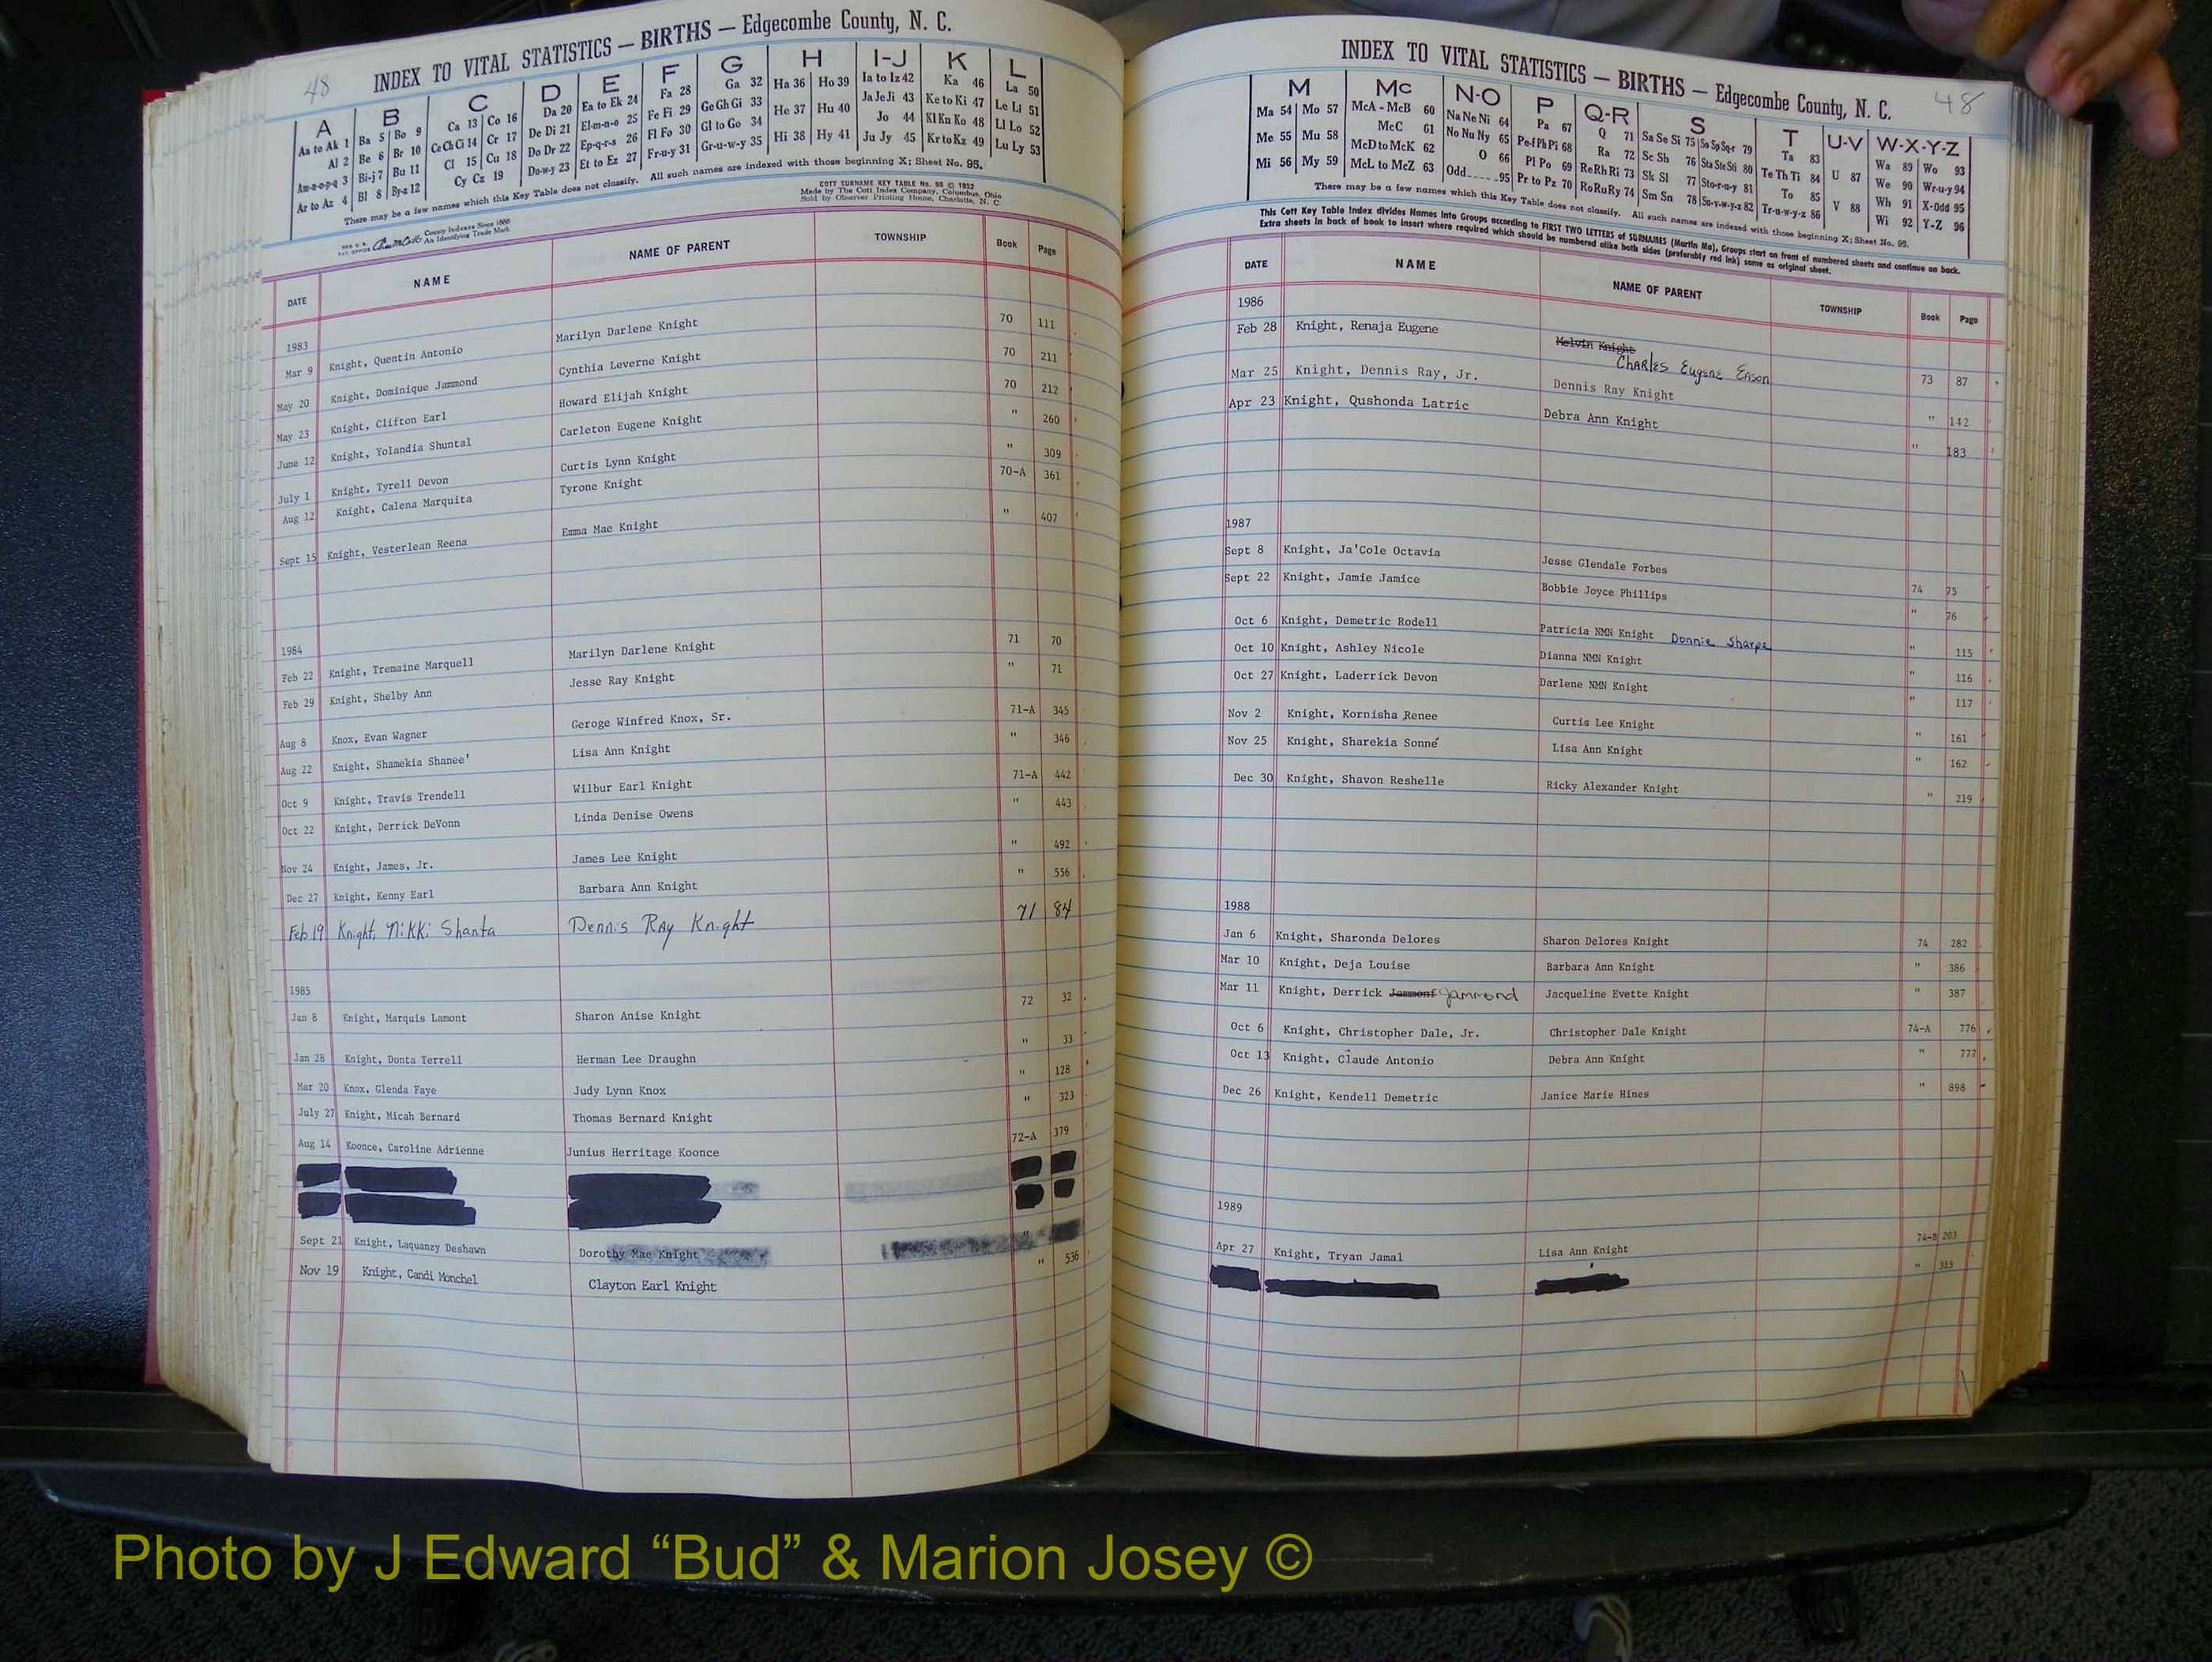 48
INDEX TO VITAL STATISTICS — BIRTHS — Edgecombe County, N. C.
A B C D E F G H I-J K L
Aa to Ak 1 Ba 5 Bo 9 Ca 13 Co 16 Da 20 Ea to Ek 24 Fa 28 Ga 32 Ha 36 Ho 39 Ia to Iz 42 Ka 46 La 50
Al 2 Be 6 Br 10 Ce Ch Ci 14 Cr 17 De Di 21 El-m-n-o 25 Fe Fi 29 Ge Gh Gi 33 He 37 Hu 40 Ja Je Ji 43 Ke to Ki 47 Le Li 51
Am-n-o-p-q 3 Bi-j 7 Bu 11 Cl 15 Cu 18 Do Dr 22 Ep-q-r-s 26 Fl Fo 30 Gl to Go 34 Hi 38 Hy 41 Jo 44 Kl Kn Ko 48 Ll Lo 52
Ar to Az 4 Bl 8 By-z 12 Cy Cz 19 Du-w-y 23 Et to Ez 27 Fr-u-y 31 Gr-u-w-y 35 Ju Jy 45 Kr to Kz 49 Lu Ly 53
There may be a few names which this Key Table does not classify. All such names are indexed with those beginning X; Sheet No. 95.
COTT SURNAME KEY TABLE No. 96 © 1952
Made by The Cott Index Company, Columbus, Ohio
Sold by Observer Printing House, Charlotte, N. C
County Indexes Since 1888
An Identifying Trade Mark
DATE NAME NAME OF PARENT TOWNSHIP Book Page
1983
Mar 9 Knight, Quentin Antonio Marilyn Darlene Knight 70 111
May 20 Knight, Dominique Jammond Cynthia Leverne Knight 70 211
May 23 Knight, Clifton Earl Howard Elijah Knight 70 212
June 12 Knight, Yolandia Shuntal Carleton Eugene Knight " 260
July 1 Knight, Tyrell Devon Curtis Lynn Knight " 309
Aug 12 Knight, Calena Marquita Tyrone Knight 70-A 361
Sept 15 Knight, Vesterlean Reena Emma Mae Knight " 407
1984
Feb 22 Knight, Tremaine Marquell Marilyn Darlene Knight 71 70
Feb 29 Knight, Shelby Ann Jesse Ray Knight " 71
Aug 8 Knox, Evan Wagner Geroge Winfred Knox, Sr. 71-A 345
Aug 22 Knight, Shamekia Shanee' Lisa Ann Knight " 346
Oct 9 Knight, Travis Trendell Wilbur Earl Knight 71-A 442
Oct 22 Knight, Derrick DeVonn Linda Denise Owens " 443
Nov 24 Knight, James, Jr. James Lee Knight " 492
Dec 27 Knight, Kenny Earl Barbara Ann Knight " 556
Feb 19 Knight, Nikki Shanta Dennis Ray Knight 71 84
1985
Jan 8 Knight, Marquis Lamont Sharon Anise Knight 72 32
Jan 28 Knight, Donta Terrell Herman Lee Draughn " 33
Mar 20 Knox, Glenda Faye Judy Lynn Knox " 128
July 27 Knight, Micah Bernard Thomas Bernard Knight " 323
Aug 14 Koonce, Caroline Adrienne Junius Herritage Koonce 72-A 379
Sept 21 Knight, Laquanzy Deshawn Dorothy Mae Knight "
Nov 19 Knight, Candi Monchel Clayton Earl Knight " 536
INDEX TO VITAL STATISTICS — BIRTHS — Edgecombe County, N. C. 48
M Mc N-O P Q-R S T U-V W-X-Y-Z
Ma 54 Mo 57 McA - McB 60 Na Ne Ni 64 Pa 67 Q 71 Sa Se Si 75 So Sp Sq-r 79 Ta 83 U 87 Wa 89 Wo 93
Me 55 Mu 58 McC 61 No Nu Ny 65 Pe-f Ph Pi 68 Ra 72 Sc Sh 76 Sta Ste Sti 80 Te Th Ti 84 V 88 We 90 Wr-u-y 94
Mi 56 My 59 McD to McK 62 O 66 Pl Po 69 Re Rh Ri 73 Sk Sl 77 Sto-r-u-y 81 To 85 Wh 91 X-Odd 95
McL to McZ 63 Odd 95 Pr to Pz 70 Ro Ru Ry 74 Sm Sn 78 Su-v-w-y-z 82 Tr-u-w-y-z 86 Wi 92 Y-Z 96
There may be a few names which this Key Table does not classify. All such names are indexed with those beginning X; Sheet No. 95.
This Cott Key Table Index divides Names into Groups according to FIRST TWO LETTERS of SURNAMES (Martin Ma), Groups start on front of numbered sheets and continue on back.
Extra sheets in back of book to insert where required which should be numbered alike both sides (preferably red ink) same as original sheet.
DATE NAME NAME OF PARENT TOWNSHIP Book Page
1986
Feb 28 Knight, Renaja Eugene Melvin Knight Charles Eugene Enson 73 87
Mar 25 Knight, Dennis Ray, Jr. Dennis Ray Knight " 142
Apr 23 Knight, Qushonda Latric Debra Ann Knight " 183
1987
Sept 8 Knight, Ja'Cole Octavia Jesse Glendale Forbes 74 75
Sept 22 Knight, Jamie Jamice Bobbie Joyce Phillips " 76
Oct 6 Knight, Demetric Rodell Patricia NMN Knight Donnie Sharpe " 115
Oct 10 Knight, Ashley Nicole Dianna NMN Knight " 116
Oct 27 Knight, Laderrick Devon Darlene NMN Knight " 117
Nov 2 Knight, Kornisha Renee Curtis Lee Knight " 161
Nov 25 Knight, Sharekia Sonné Lisa Ann Knight " 162
Dec 30 Knight, Shavon Reshelle Ricky Alexander Knight " 219
1988
Jan 6 Knight, Sharonda Delores Sharon Delores Knight 74 282
Mar 10 Knight, Deja Louise Barbara Ann Knight " 386
Mar 11 Knight, Derrick Jammonf Jammond Jacqueline Evette Knight " 387
Oct 6 Knight, Christopher Dale, Jr. Christopher Dale Knight 74-A 776
Oct 13 Knight, Claude Antonio Debra Ann Knight " 777
Dec 26 Knight, Kendell Demetric Janice Marie Hines " 898
1989
Apr 27 Knight, Tryan Jamal Lisa Ann Knight 74-B 203
" 313
Photo by J Edward “Bud” & Marion Josey ©